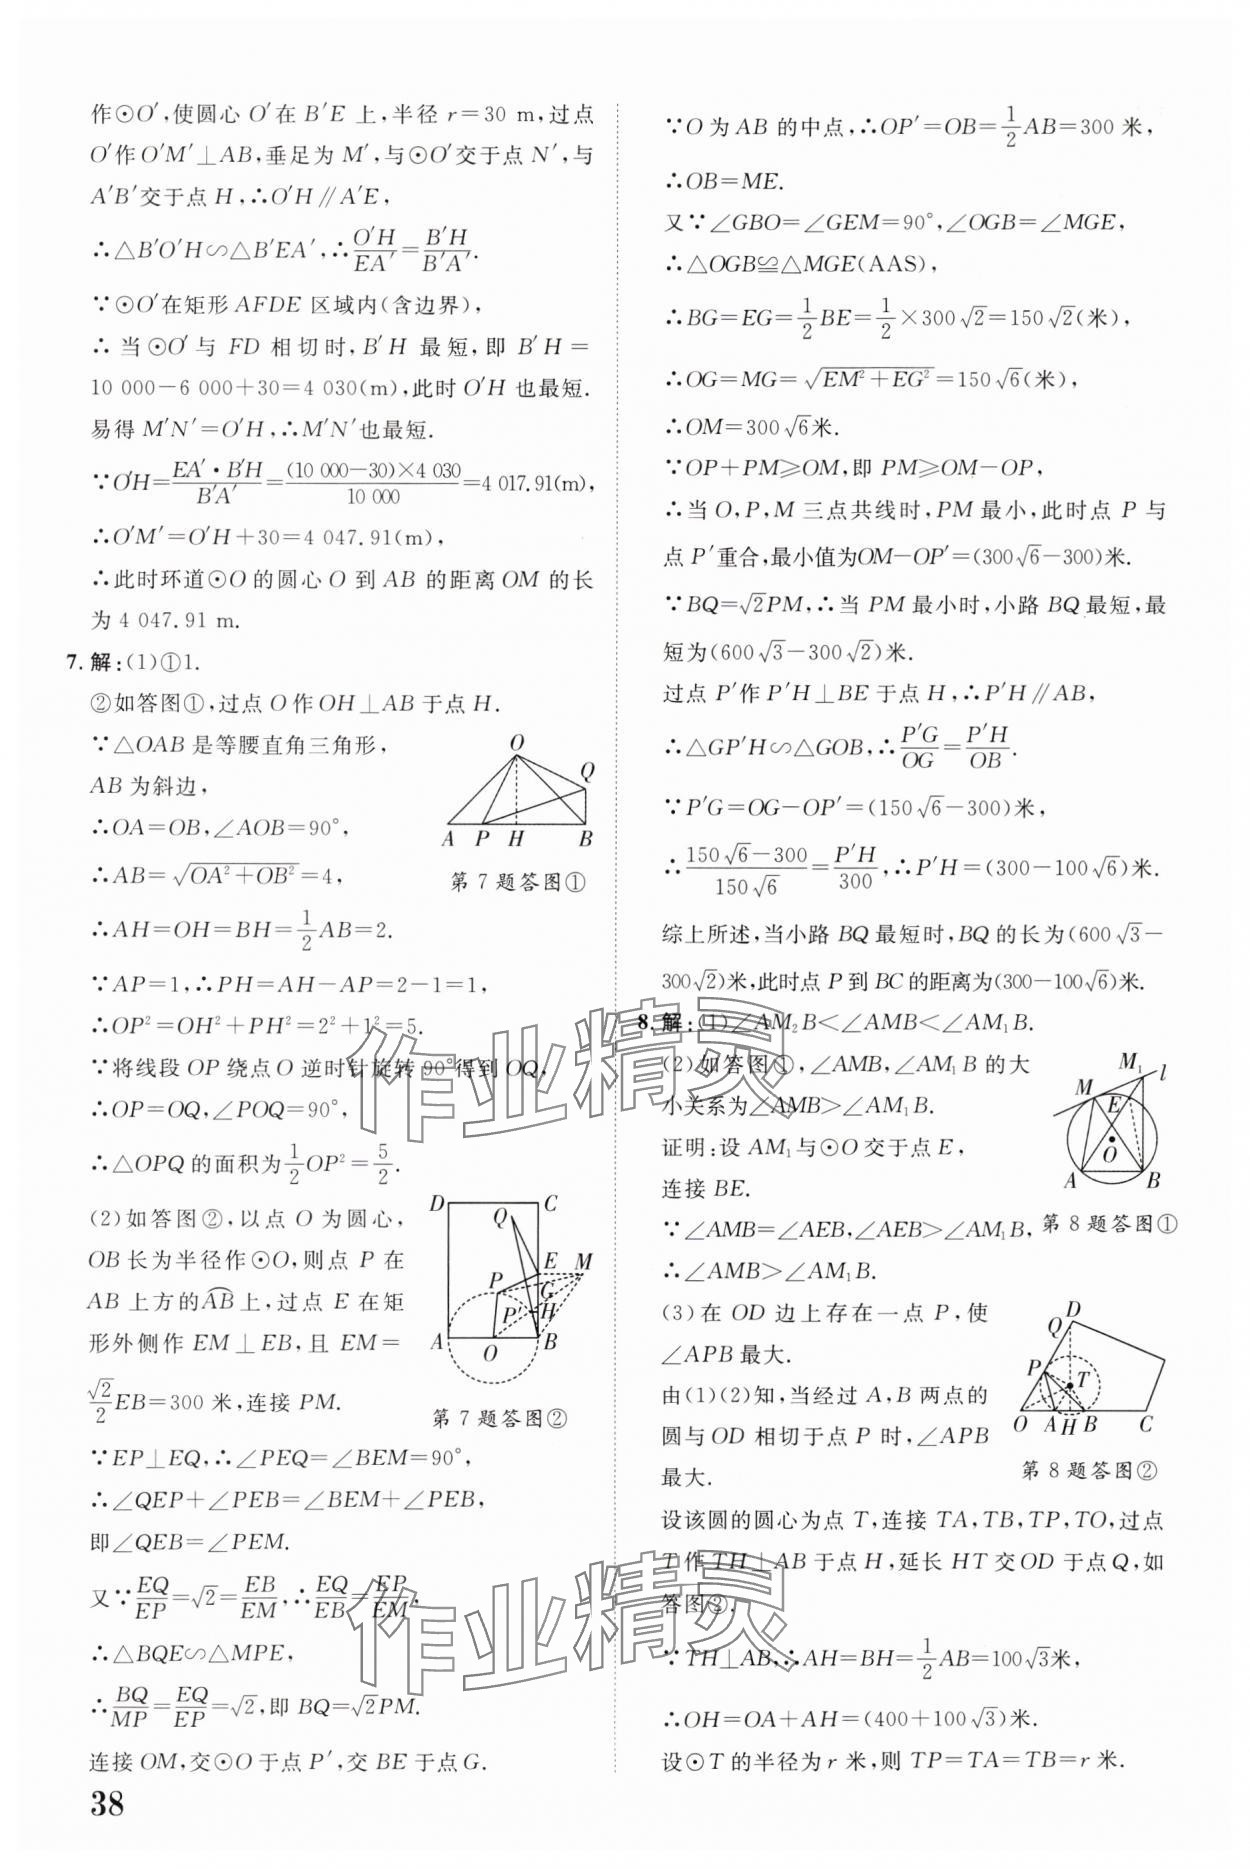 作⊙O′,使圆心 O′在 B′E 上,半径 r=30 m,过点
O′作 O′M′⊥AB,垂足为 M′,与⊙O′交于点 N′,与
A′B′交于点 H,∴O′H∥A′E,
∴△B′O′H∽△B′EA′,∴O′H/EA′=B′H/B′A′.
∵⊙O′在矩形 AFDE 区域内(含边界),
∴当⊙O′与 FD 相切时,B′H 最短,即 B′H=
10 000-6 000+30=4 030(m),此时 O′H 也最短.
易得 M′N′=O′H,∴M′N′也最短.
∵O′H=EA′·B′H/B′A′=(10 000-30)×4 030/10 000=4 017.91(m),
∴O′M′=O′H+30=4 047.91(m),
∴此时环道⊙O 的圆心 O 到 AB 的距离 OM 的长
为 4 047.91 m.
7.解:(1)①1.
②如答图①,过点 O 作 OH⊥AB 于点 H.
∵△OAB 是等腰直角三角形,
AB 为斜边,
∴OA=OB,∠AOB=90°,
∴AB=√(OA²+OB²)=4,
∴AH=OH=BH=1/2AB=2.
∵AP=1,∴PH=AH-AP=2-1=1,
∴OP²=OH²+PH²=2²+1²=5.
∵将线段 OP 绕点 O 逆时针旋转 90°得到 OQ,
∴OP=OQ,∠POQ=90°,
∴△OPQ 的面积为1/2OP²=5/2.
O
Q
A P H B
第 7 题答图①
(2)如答图②,以点 O 为圆心,
OB 长为半径作⊙O,则点 P 在
AB 上方的AB上,过点 E 在矩
形外侧作 EM⊥EB,且 EM=
√2/2EB=300 米,连接 PM.
D C
Q
E M
P G
P′ H
A O B
第 7 题答图②
∵EP⊥EQ,∴∠PEQ=∠BEM=90°,
∴∠QEP+∠PEB=∠BEM+∠PEB,
即∠QEB=∠PEM.
又∵EQ/EP=√2=EB/EM,∴EQ/EB=EP/EM,
∴△BQE∽△MPE,
∴BQ/MP=EQ/EP=√2,即 BQ=√2PM.
连接 OM,交⊙O 于点 P′,交 BE 于点 G.
38
∵O 为 AB 的中点,∴OP′=OB=1/2AB=300 米,
∴OB=ME.
又∵∠GBO=∠GEM=90°,∠OGB=∠MGE,
∴△OGB≌△MGE(AAS),
∴BG=EG=1/2BE=1/2×300√2=150√2(米),
∴OG=MG=√(EM²+EG²)=150√6(米),
∴OM=300√6米.
∵OP+PM≥OM,即 PM≥OM-OP,
∴当 O,P,M 三点共线时,PM 最小,此时点 P 与
点 P′重合,最小值为OM-OP′=(300√6-300)米.
∵BQ=√2PM,∴当 PM 最小时,小路 BQ 最短,最
短为(600√3-300√2)米.
过点 P′作 P′H⊥BE 于点 H,∴P′H∥AB,
∴△GP′H∽△GOB,∴P′G/OG=P′H/OB.
∵P′G=OG-OP′=(150√6-300)米,
∴(150√6-300)/150√6=P′H/300,∴P′H=(300-100√6)米.
综上所述,当小路 BQ 最短时,BQ 的长为(600√3-
300√2)米,此时点 P 到 BC 的距离为(300-100√6)米.
8.解:(1)∠AM₂B<∠AMB<∠AM₁B.
(2)如答图①,∠AMB,∠AM₁B 的大
小关系为∠AMB>∠AM₁B.
证明:设 AM₁与⊙O 交于点 E,
连接 BE.
∵∠AMB=∠AEB,∠AEB>∠AM₁B,
∴∠AMB>∠AM₁B.
M₁ l
M E
O
A B
第 8 题答图①
(3)在 OD 边上存在一点 P,使
∠APB 最大.
由(1)(2)知,当经过 A,B 两点的
圆与 OD 相切于点 P 时,∠APB
最大.
D
Q
P T
O A H B C
第 8 题答图②
设该圆的圆心为点 T,连接 TA,TB,TP,TO,过点
T 作 TH⊥AB 于点 H,延长 HT 交 OD 于点 Q,如
答图②.
∵TH⊥AB,∴AH=BH=1/2AB=100√3米,
∴OH=OA+AH=(400+100√3)米.
设⊙T 的半径为 r 米,则 TP=TA=TB=r 米.
作业精灵
作业精灵